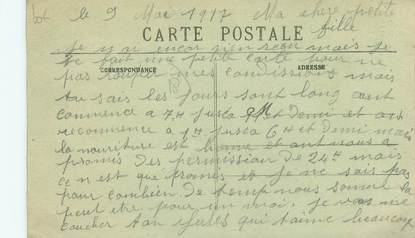 le 9 Mai 1917 Ma chere petite
fille
CARTE POSTALE
je n'ai encor rien recu mais je
te fait une petite carte pour ne
CORRESPONDANCE
ADRESSE
pas mes commissions mais
tu sais les jours sont long ont
commence a 7H jusca et demi et
recommence a 1H jusca 6H et demi mais
la nouriture est bonne et ont nous a
promis des permission de 24H mais
ce n est que promis et je ne sais pas
pour combien de temp nous somme la
peut etre pour un moi. je vais me
coucher ton qui t'aime beaucoup